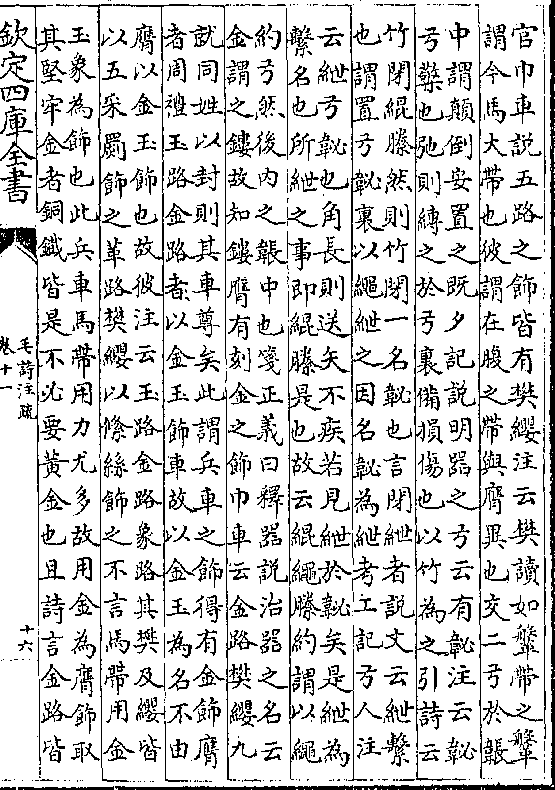 官巾車說五路之飾皆有樊纓注云樊讀如鞶帶之鞶
謂今馬大帶也彼謂在腹之帶與膺異也交二弓於韔
中謂顛倒安置之既夕記說明器之弓云有䪐注云䪐
弓檠也弛則縛之於弓裏備損傷也以竹為之引詩云
竹閉緄縢然則竹閉一名䪐也言閉紲者說文云紲繫
也謂置弓䪐裏以繩紲之因名䪐為紲考工記弓人注
云紲弓䪐也角長則送矢不疾若見紲於䪐矣是紲為
繫名也所紲之事即緄縢是也故云緄繩縢約謂以繩
約弓然後內之韔中也箋正義曰釋器說治器之名云
金謂之鏤故知鏤膺有刻金之飾巾車云金路樊纓九
就同姓以封則其車尊矣此謂兵車之飾得有金飾膺
者周禮玉路金路者以金玉飾車故以金玉為名不由
膺以金玉飾也故彼注云玉路金路象路其樊及纓皆
以五采罽飾之革路樊纓以絛絲飾之不言馬帶用金
玉象為飾也此兵車馬帶用力尤多故用金為膺飾取
其堅牢金者銅鐵皆是不必要黃金也且詩言金路皆
欽定四庫全書
毛詩注疏
卷十一
十六